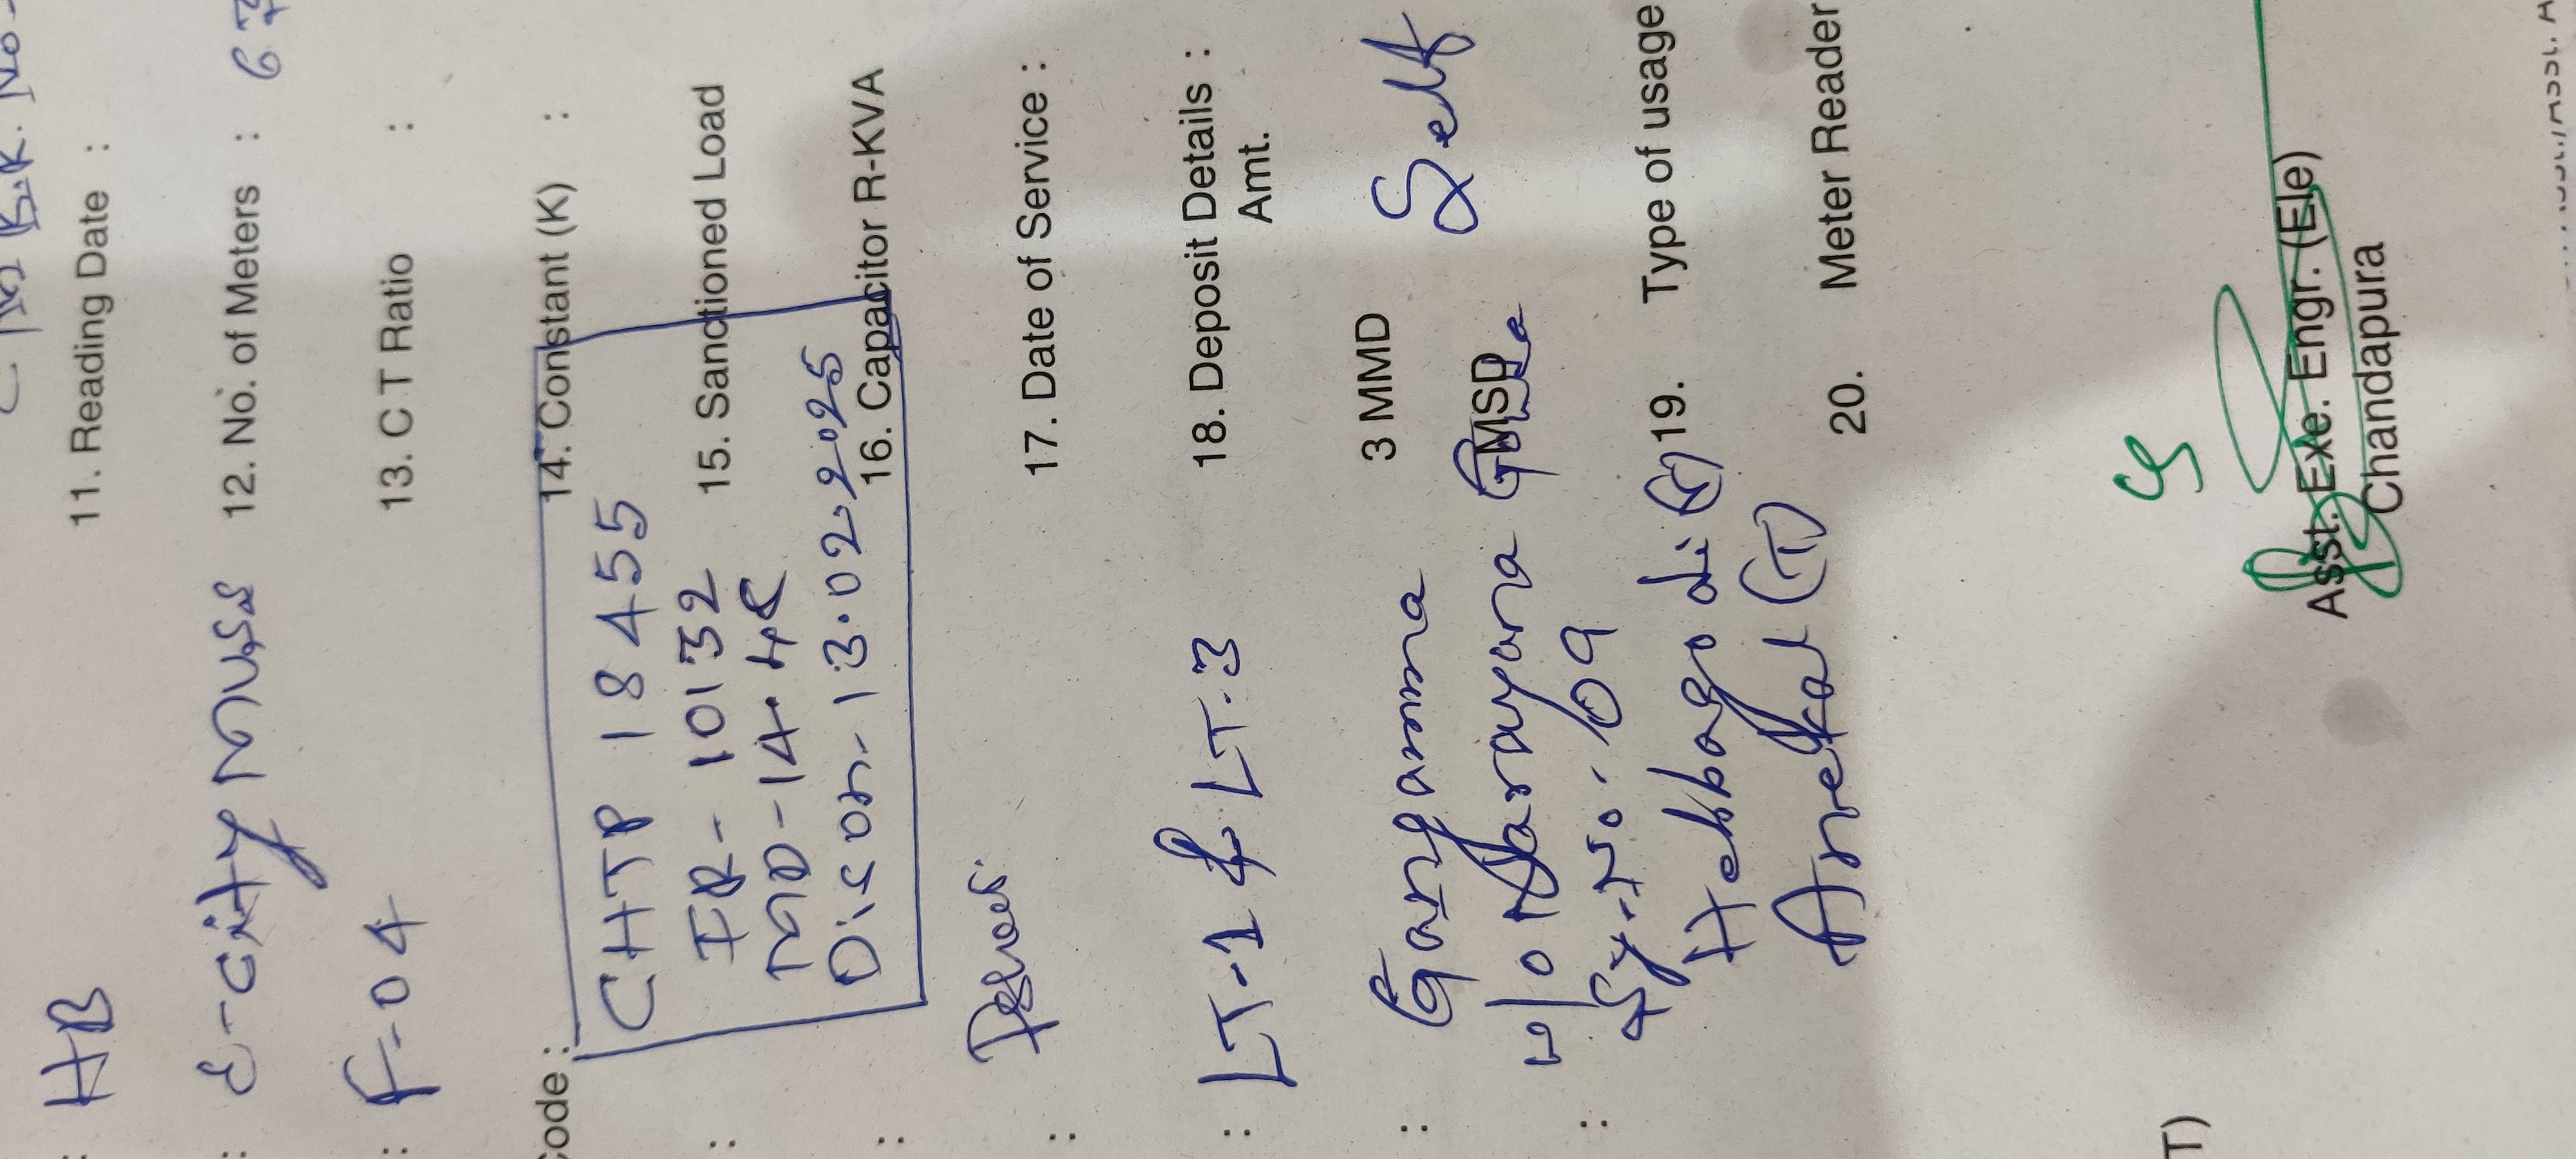 HB 11. Reading Date :
E-city 12. No. of Meters : 67
F-04 13. C T Ratio :
Code : 14. Constant (K) :
CHTP 18455
: IR- 10132 15. Sanctioned Load
MD-14.48
: Discon- 13.02.2025 16. Capacitor R-KVA
: 17. Date of Service :
: LT-1 & LT-3 18. Deposit Details :
Amt.
: Gangamma 3 MMD Self
w/o Narayana MSD
: Sy-No. 69
Hebbagodi (V) 19. Type of usage
Anekal (T) 20. Meter Reader
Asst. Exe. Engr. (Ele)
Chandapura